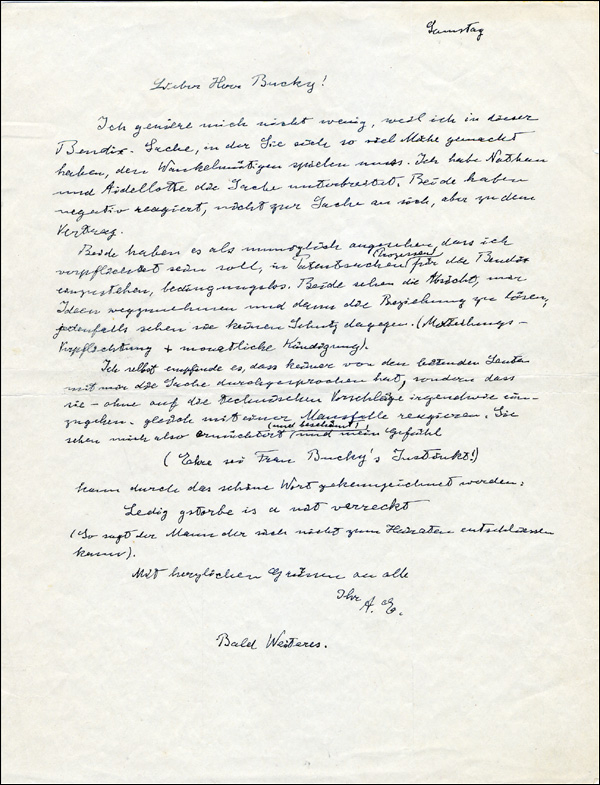 Samstag
Lieber Herr Bucky!
Ich geniere mich nicht wenig, weil ich in dieser
Bendix-Sache, in der Sie sich so viel Mühe gemacht
haben, den Wankelmütigen spielen muss. Ich habe Nathan
und Aidellotte die Sache unterbreitet. Beide haben
negativ reagiert, nicht zur Sache an sich, aber zu dem
Vertrag.
Beide haben es als unmöglich angesehen, dass ich
verpflichtet sein soll, in Patentsachen (Prozessen) für die Bendix
einzustehen, bedingungslos. Beide sehen die Absicht, mir
Ideen wegzunehmen und dann die Beziehung zu lösen;
jedenfalls sehen sie keinen Schutz dagegen. (Mitteilungs-
Verpflichtung + monatliche Kündigung).
Ich selbst empfinde es, dass keiner von den leitenden Leuten
mit mir die Sache durchgesprochen hat, sondern dass
sie - ohne auf die technischen Vorschläge irgendwie ein-
zugehen - gleich mit einer Mausefalle reagieren. Sie
sehen mich also ernüchtert (und beschämt!) und mein Gefühl
(Ehre sei Frau Bucky's Instinkt!)
kann durch das schöne Wort gekennzeichnet werden:
Ledig gstorbe is a nit verreckt
(So sagt der Mann der sich nicht zum Heiraten entschliessen
kann).
Mit herzlichen Grüssen an alle
Ihr
A. E.
Bald Weiteres.